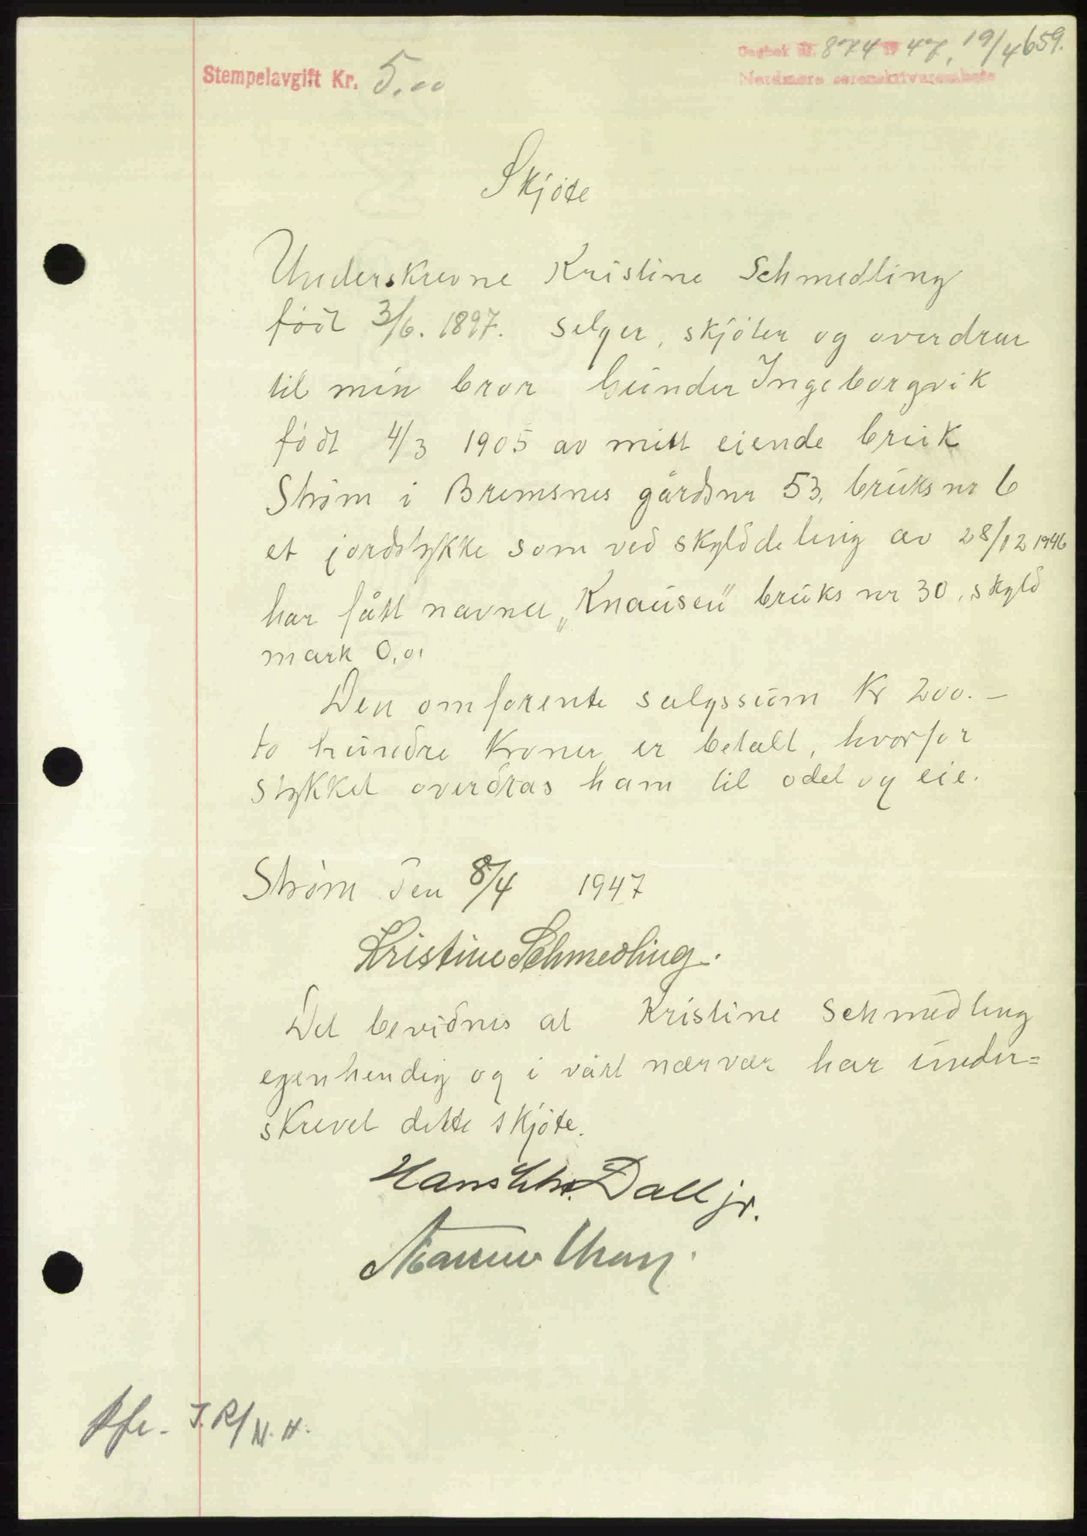 Stempelavgift Kr. 5.00
Dagbok nr. 874 19 47, 19/4 659.
Nordmøre sorenskriverembete
Skjöte
Underskrevne Kristine Schmedling
född 3/6. 1897. selger, skjöter og overdrar
til min bror Gunder Ingeborgvik
född 4/3 1905 av mitt eiende bruk
Strøm i Bremsnes gårdsnr 53, bruksnr 6
et jordstykke som ved skylddeling av 28/12 1946
har fått navnet „Knausen" bruks nr 30, skyld
mark 0,01
Den omforente salgssum Kr 200.-
to hundre Kroner er betalt, hvorfor
stykket overdras ham til odel og eie.
Strøm den 8/4 1947
Kristine Schmedling.
Det bevidnes at Kristine Schmedling
egenhendig og i vårt nærvær har under=
skrevet dette skjöte.
Hans Chr. Dall jr.
J.R/N.H.